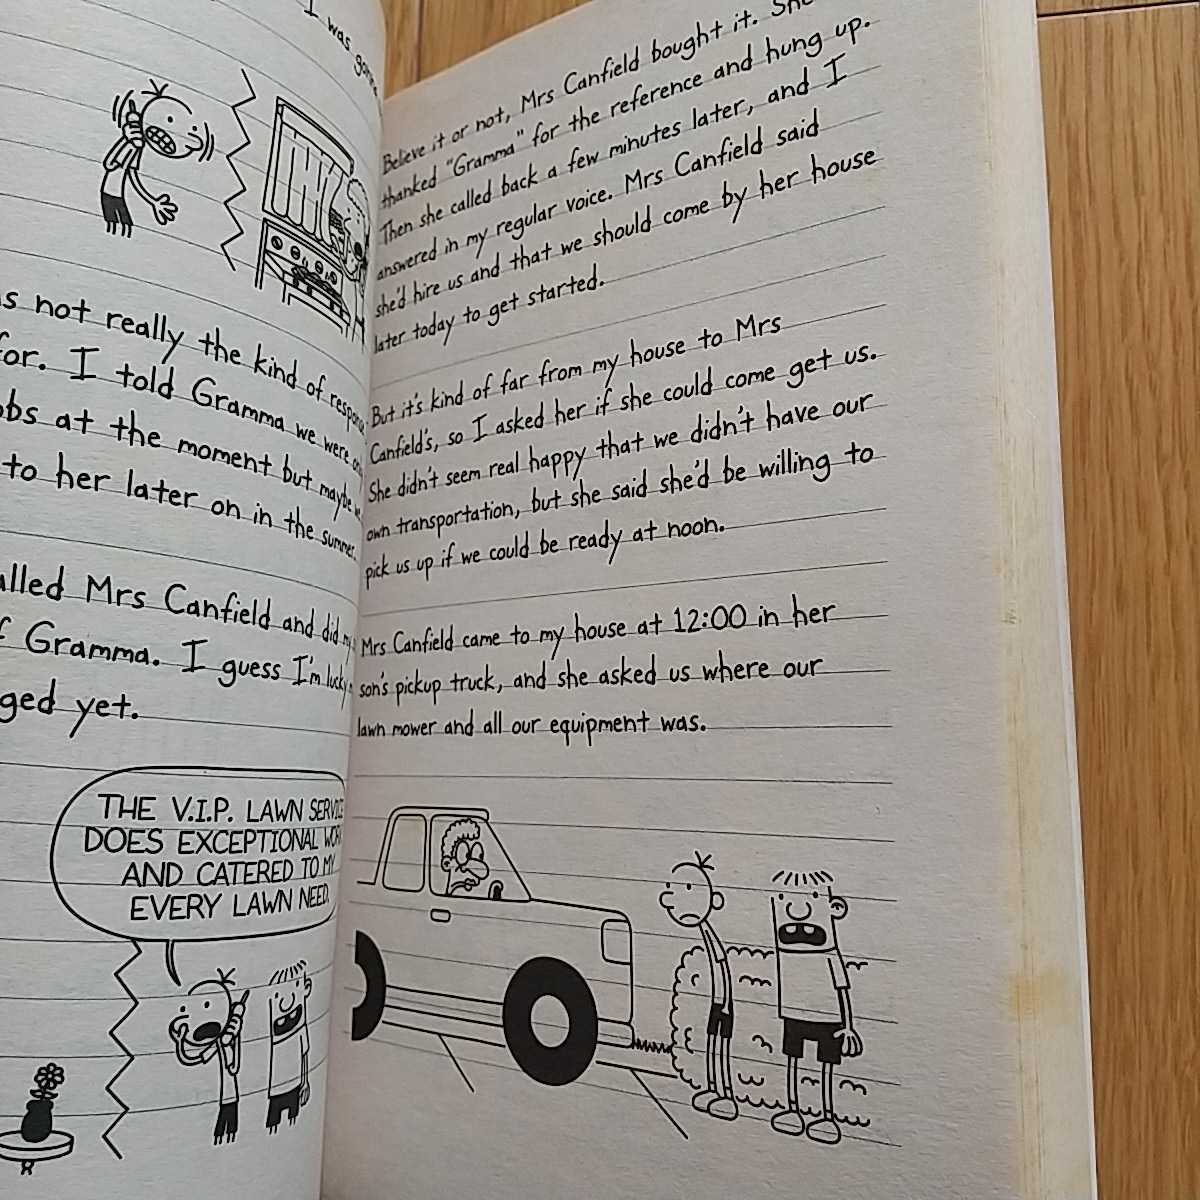 I was gone
s not really the kind of
for. I told Gramma we were
obs at the moment but maybe
to her later on in the summer.
alled Mrs Canfield and did my
f Gramma. I guess I'm lucky
ged yet.
THE V.I.P. LAWN SERVICE
DOES EXCEPTIONAL WORK
AND CATERED TO MY
EVERY LAWN NEED.
Believe it or not, Mrs Canfield bought it. She
thanked "Gramma" for the reference and hung up.
Then she called back a few minutes later, and I
answered in my regular voice. Mrs Canfield said
she'd hire us and that we should come by her house
later today to get started.
But it's kind of far from my house to Mrs
Canfield's, so I asked her if she could come get us.
She didn't seem real happy that we didn't have our
own transportation, but she said she'd be willing to
pick us up if we could be ready at noon.
Mrs Canfield came to my house at 12:00 in her
son's pickup truck, and she asked us where our
lawn mower and all our equipment was.